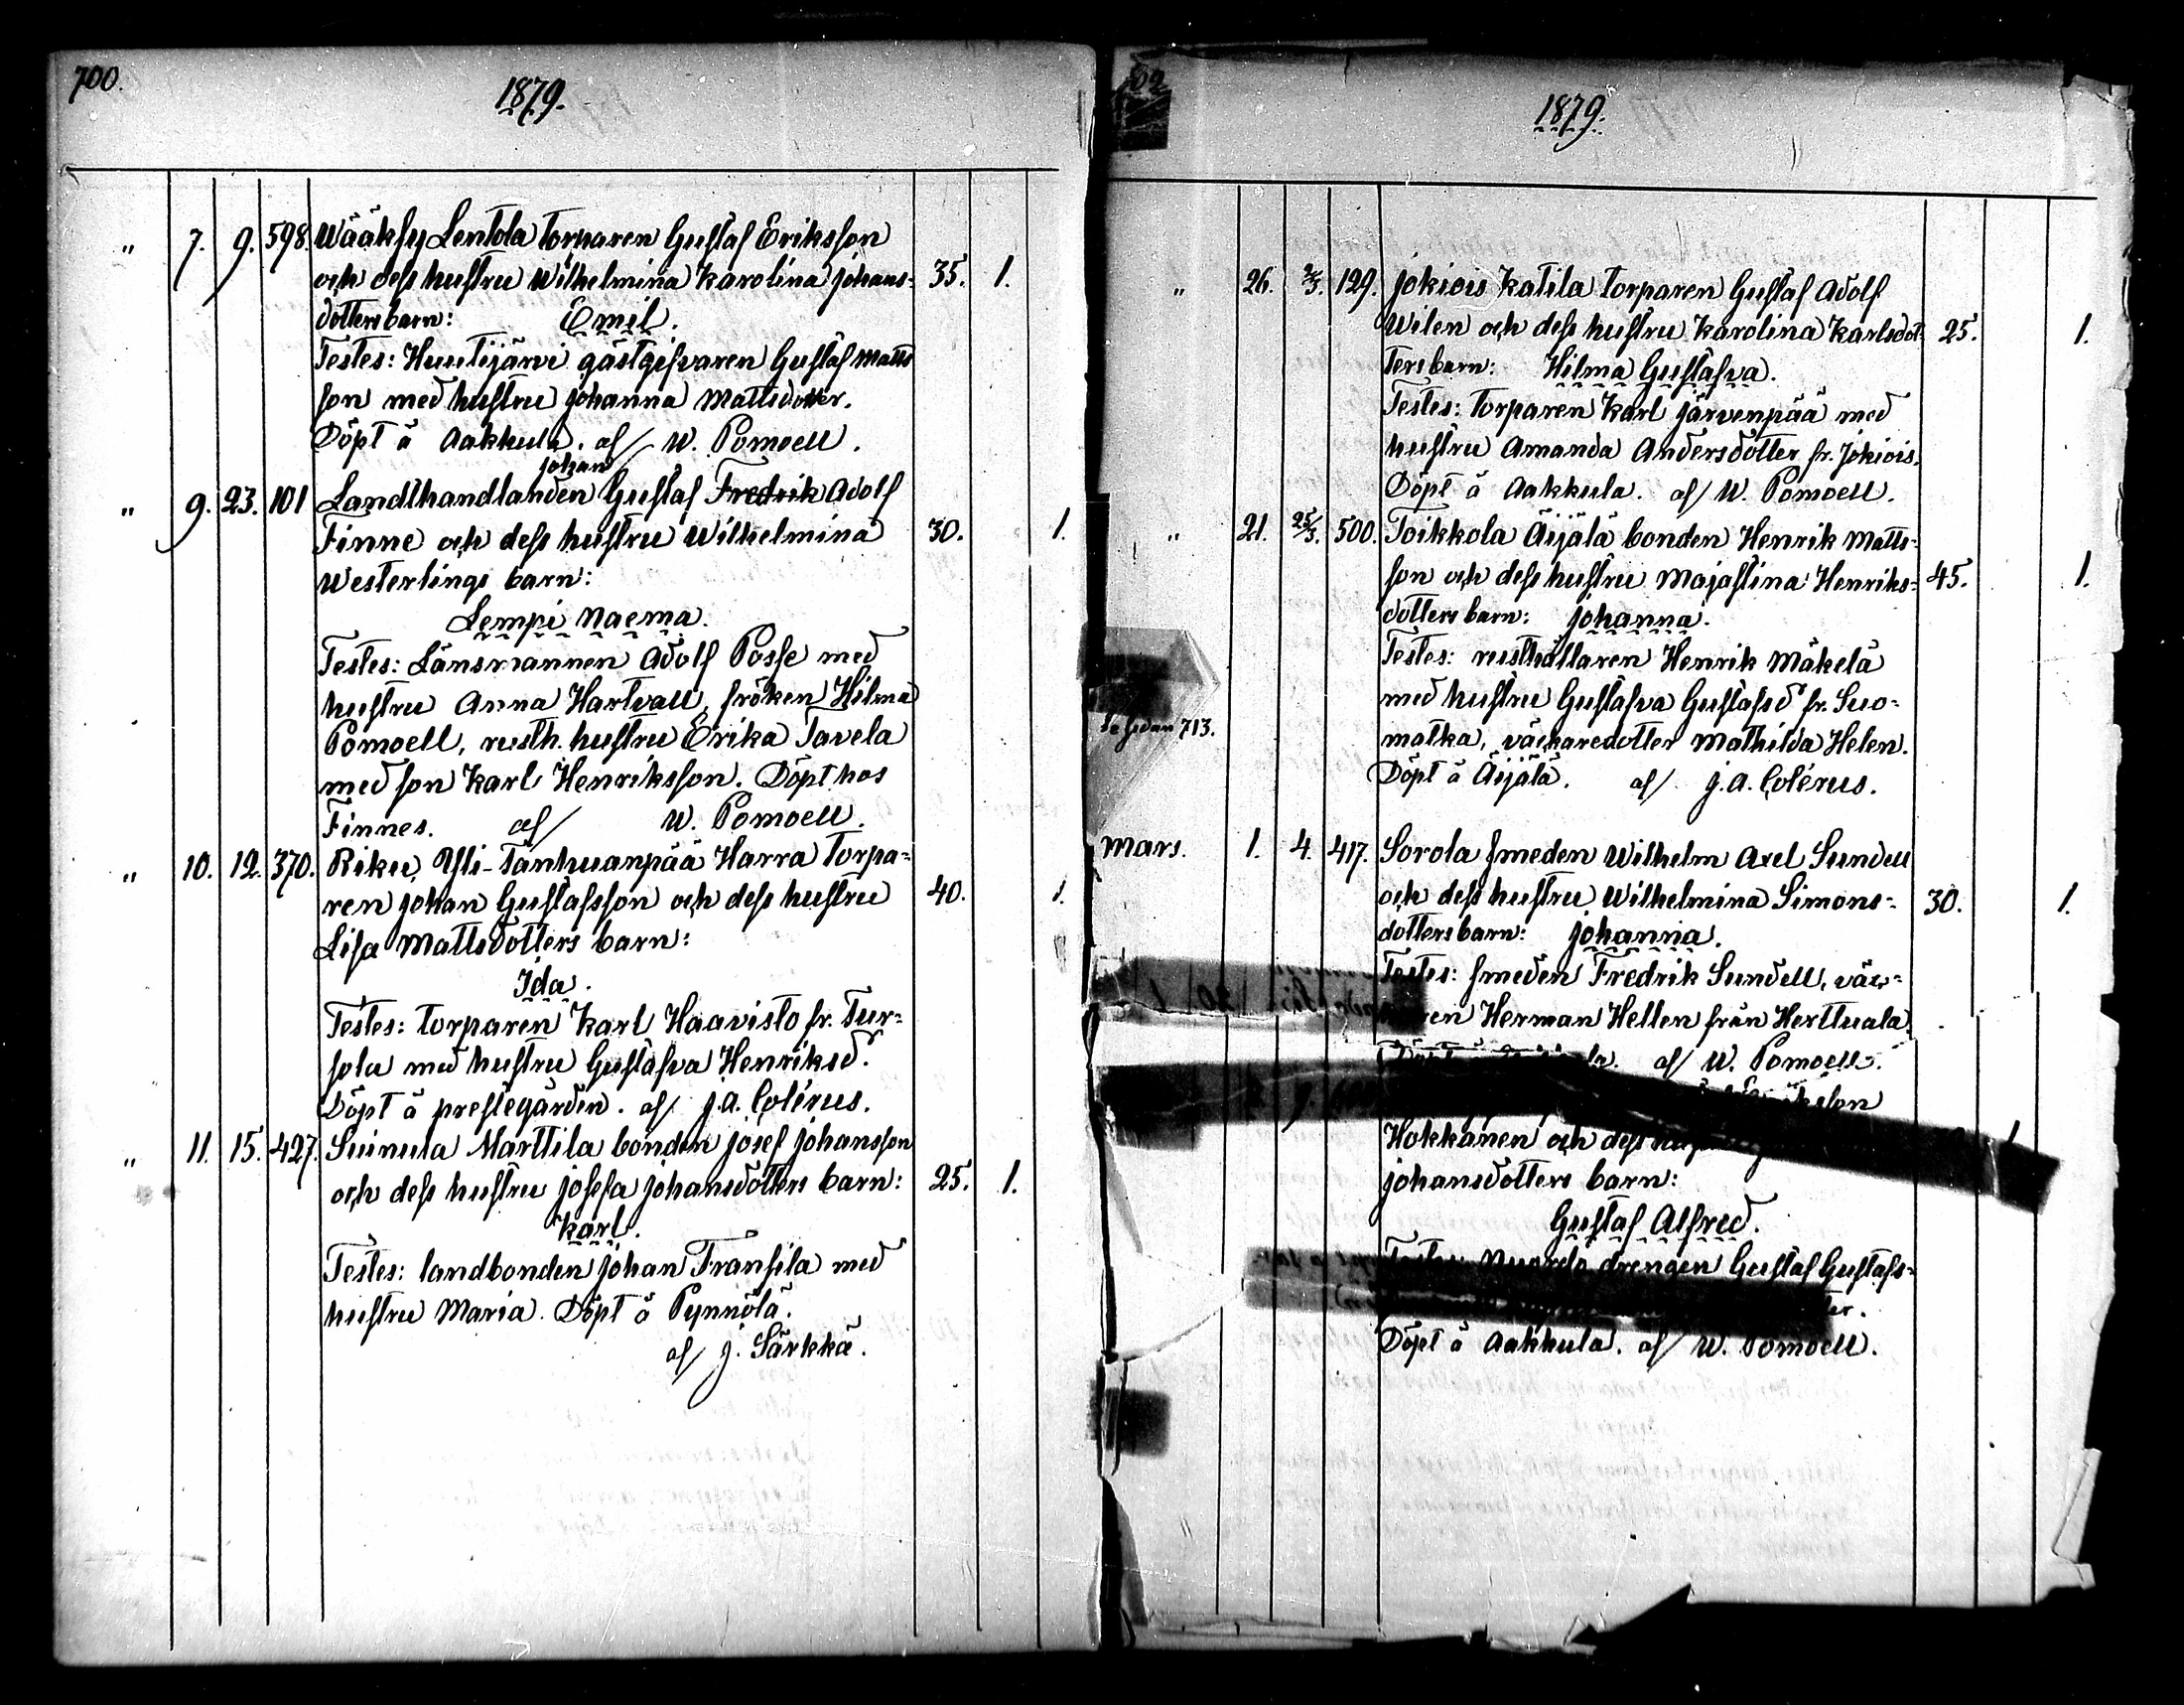 700.
1879.
" 7. 9. 598. Wääksy Lentola torparen Gustaf Eriksson
och dess hustru Wilhelmina Karolina Johans- 35. 1.
dotters barn: Emil.
Testes: Huutijärvi gästgifvaren Gustaf Matts
son med hustru Johanna Mattsdotter.
Döpt å Aakkula. af/ W. Pomoell.
Johan
" 9. 23. 101 Landthandlanden Gustaf Fredrik Adolf
Finne och dess hustru Wilhelmina 30. 1.
Westerlings barn:
Lempi Naema.
Testes: Länsmannen Adolf Posse med
hustru Anna Hartvall, fröken Hilma
Pomoell, rusth. hustru Erika Tavela
med son Karl Henriksson. Döpt hos
Finnes. af/ W. Pomoell.
" 10. 12. 370. Riku, Yli-Tanhuanpää Harra torpa-
ren Johan Gustafsson och dess hustru 40. 1.
Lisa Mattsdotters barn:
Ida.
Testes: torparen Karl Haavisto fr. Tur-
sola med hustru Gustafva Henriksd.
Döpt å prestegården. af/ J. A. Colérus.
" 11. 15. 427. Suinula Marttila bonden Josef Johansson
och dess hustru Josefa Johansdotters barn: 25. 1.
Karl.
Testes: landbonden Johan Fransila med
hustru Maria. Döpt å Pynnölä.
af/ J. Särkkä.
702
1879.
" 26. 2/3. 129. Jokiois Katila torparen Gustaf Adolf
Wilen och dess hustru Karolina Karlsdot- 25. 1.
ters barn: Hilma Gustafva.
Testes: torparen Karl Järvenpää med
hustru Amanda Andersdotter fr. Jokiois.
Döpt å Aakkula. af/ W. Pomoell.
" 21. 25/3. 500. Toikkola Äijälä bonden Henrik Matts-
son och dess hustru Majastina Henriks- 45. 1.
dotters barn: Johanna.
Testes: rusthållaren Henrik Mäkelä
med hustru Gustafva Gustafsd fr. Suo-
Se sidan 713.
matka, väfvaredotter Mathilda Helen.
Döpt å Äijälä. af/ J. A. Colérus.
Mars. 1. 4. 417. Sorola smeden Wilhelm Axel Sundell
och dess hustru Wilhelmina Simons- 30. 1.
dotters barn: Johanna.
Testes: smeden Fredrik Sundell, väf-
Herman Hellen från Herttuala.
af/ W. Pomoell.
Hokkanen och dess
Johansdotters barn:
Gustaf Alfred.
Testes: drengen Gustaf Gustafs-
Döpt å Aakkula. af/ W. Pomoell.